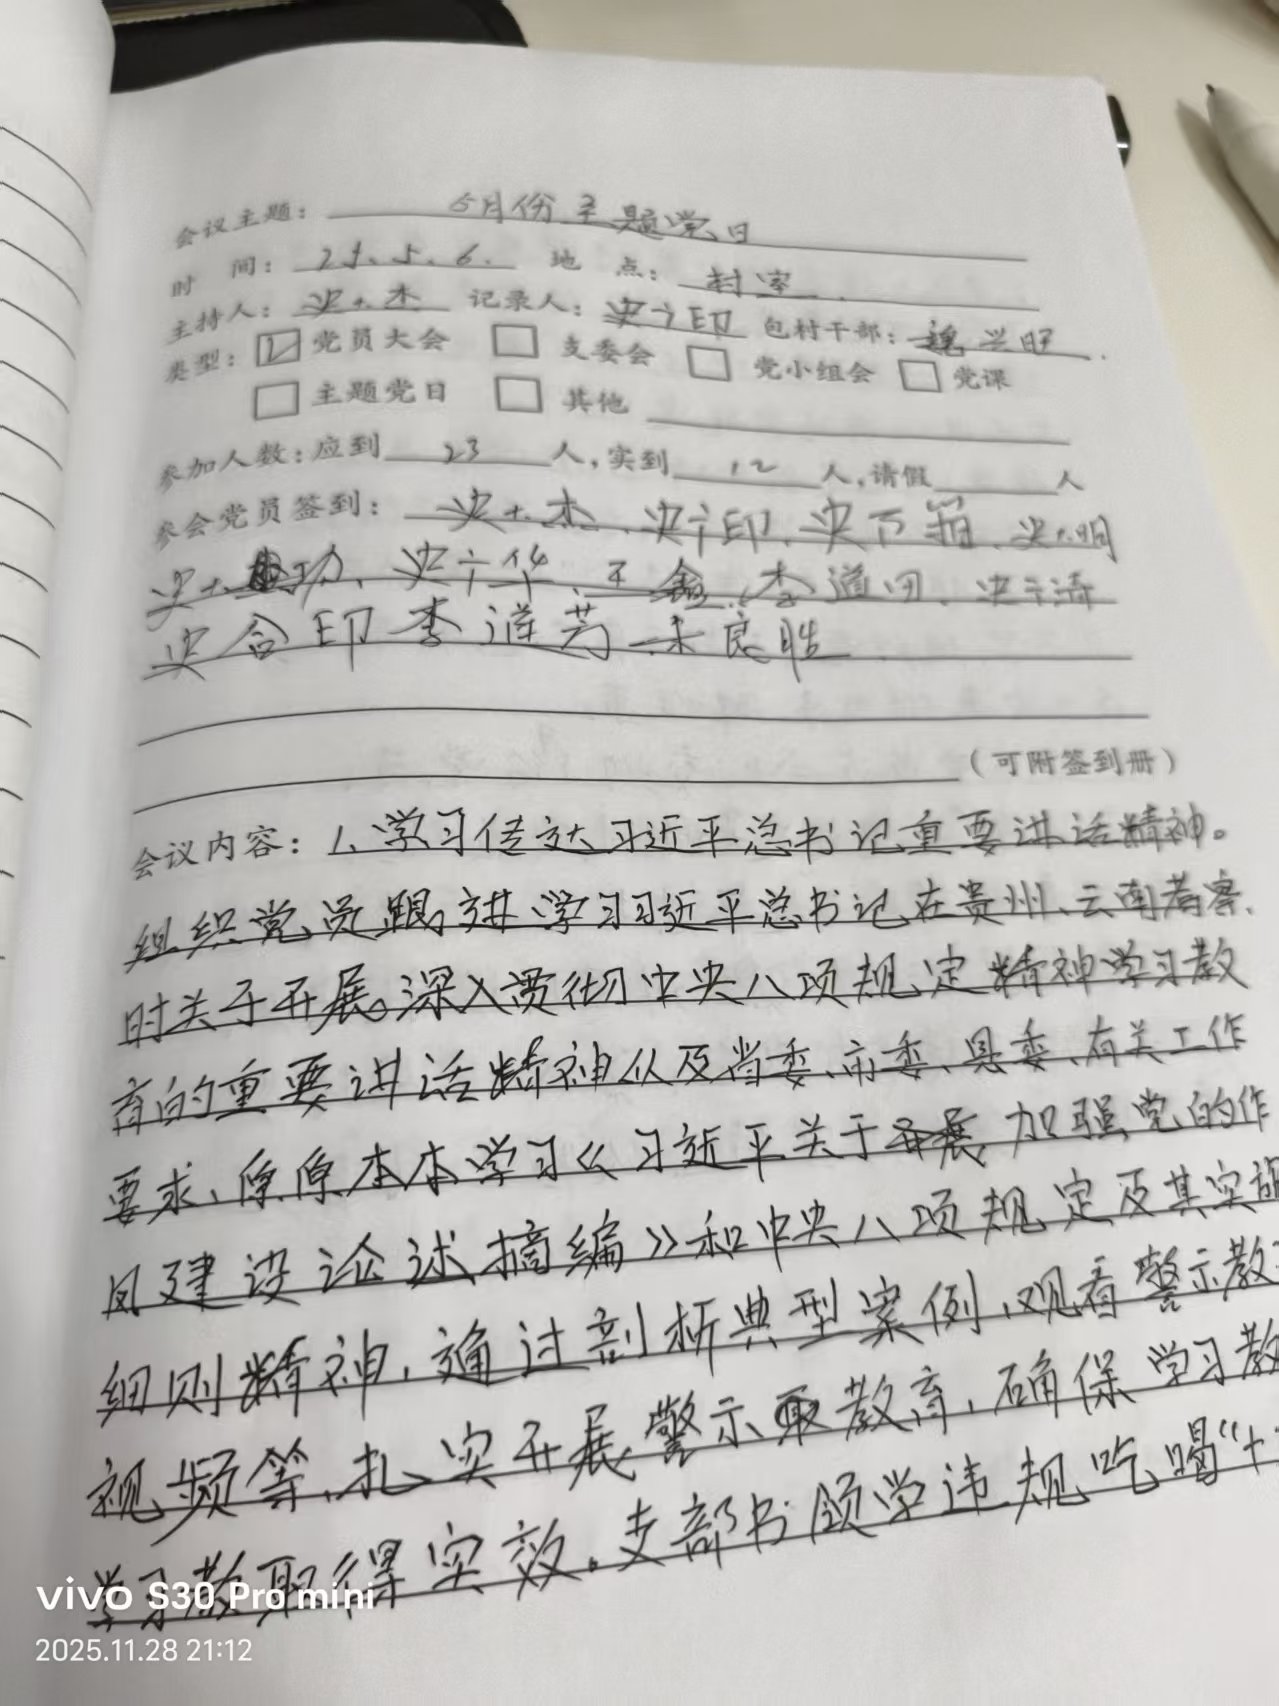 会议主题：5月份主题党日
时 间：25.5.6. 地 点：村室
主持人： 记录人： 包村干部：魏兴旺
类型：☑党员大会 □支委会 □党小组会 □党课
□主题党日 □其他
参加人数：应到23人，实到12人，请假 人
参会党员签到：
李道田
史合印 李道芳 朱良胜
（可附签到册）
会议内容：1、学习传达习近平总书记重要讲话精神。
组织党员跟进学习习近平总书记在贵州、云南考察
时关于开展。深入贯彻中央八项规定精神学习教
育的重要讲话精神以及省委、市委、县委、有关工作
要求、原原本本学习《习近平关于加强党的作
风建设论述摘编》和中央八项规定及其实施
细则精神，通过剖析典型案例、观看警示教
视频等、扎实开展警示教育，确保学习教
学习教取得实效。支部书领学违规吃喝“十
vivo S30 Pro mini
2025.11.28 21:12